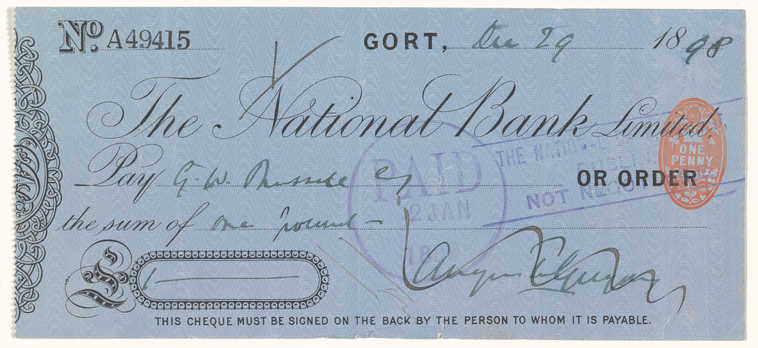 No. A49415 GORT, Dec 29 1898
The National Bank Limited,
Pay G. W. Russell Esq OR ORDER
the sum of one pound —
£ 1 —
Augusta Gregory
THIS CHEQUE MUST BE SIGNED ON THE BACK BY THE PERSON TO WHOM IT IS PAYABLE.
PAID
2 JAN
THE NATION
DUBLIN
NOT NEGO
ONE
PENNY